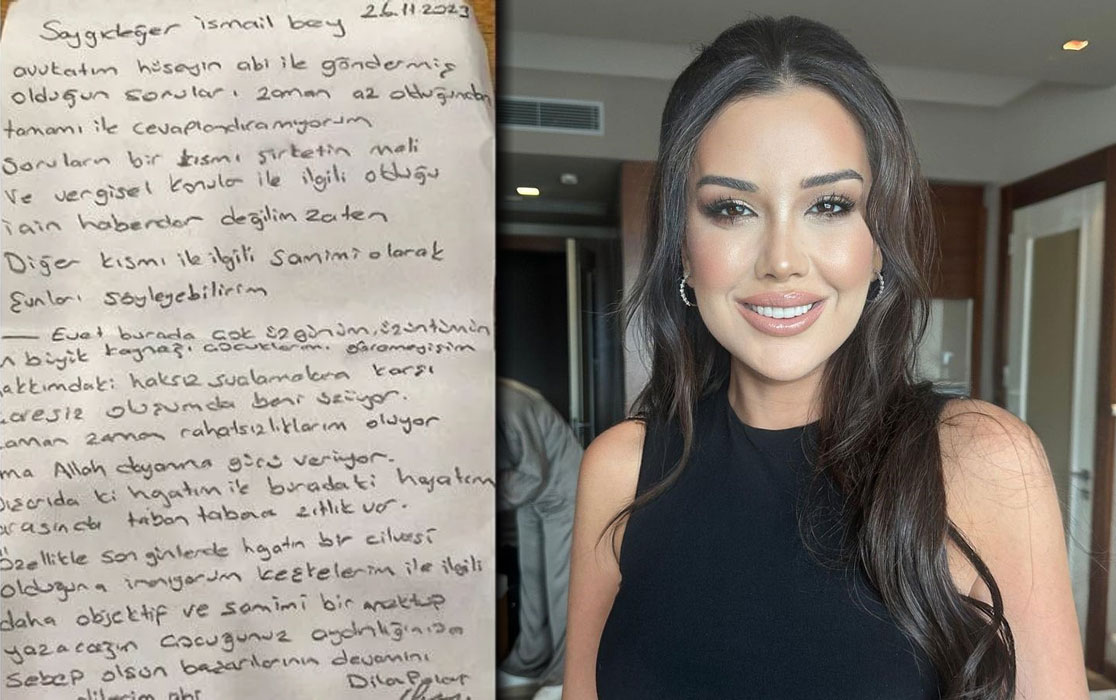 26.11.2023
Saygıdeğer ismail bey
avukatım hüseyin abi ile göndermiş
olduğun soruları zaman az olduğundan
tamamı ile cevaplandıramıyorum
Soruların bir kısmı şirketin mali
ve vergisel konular ile ilgili olduğu
için haberdar değilim zaten
Diğer kısmı ile ilgili samimi olarak
şunları söyleyebilirim
— Evet burada çok üzgünüm, üzüntümün
n büyük kaynağı çocuklarımı göremeyişim
akkımdaki haksız suçlamalara karşı
aresiz oluşumda beni üzüyor.
aman zaman rahatsızlıklarım oluyor
ma Allah dayanma gücü veriyor.
ışarıda ki hayatım ile buradaki hayatım
arasında taban tabana zıtlık var.
Özellikle son günlerde hayatın bir cilvesi
olduğuna inanıyorum keşkelerim ile ilgili
daha objektif ve samimi bir mektup
yazacağım çocuğunuz aydınlığınıza
Sebep olsun başarılarının devamını
Dila Polat
dilerim abi